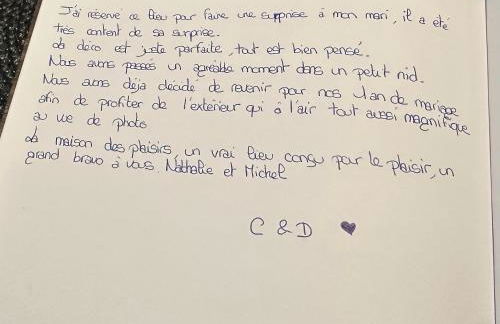 J'ai réservé ce lieu pour faire une surprise à mon mari, il a été
très content de sa surprise.
La déco est juste parfaite, tout est bien pensé.
Nous avons passés un agréable moment dans un petit nid.
Nous avons déja décidé de revenir pour nos 1an de mariage
afin de profiter de l'extérieur qui à l'air tout aussi magnifique
au vue de photo
La maison des plaisirs, un vrai lieu conçu pour le plaisir, un
grand bravo à vous Nathalie et Michel
C & D ♥